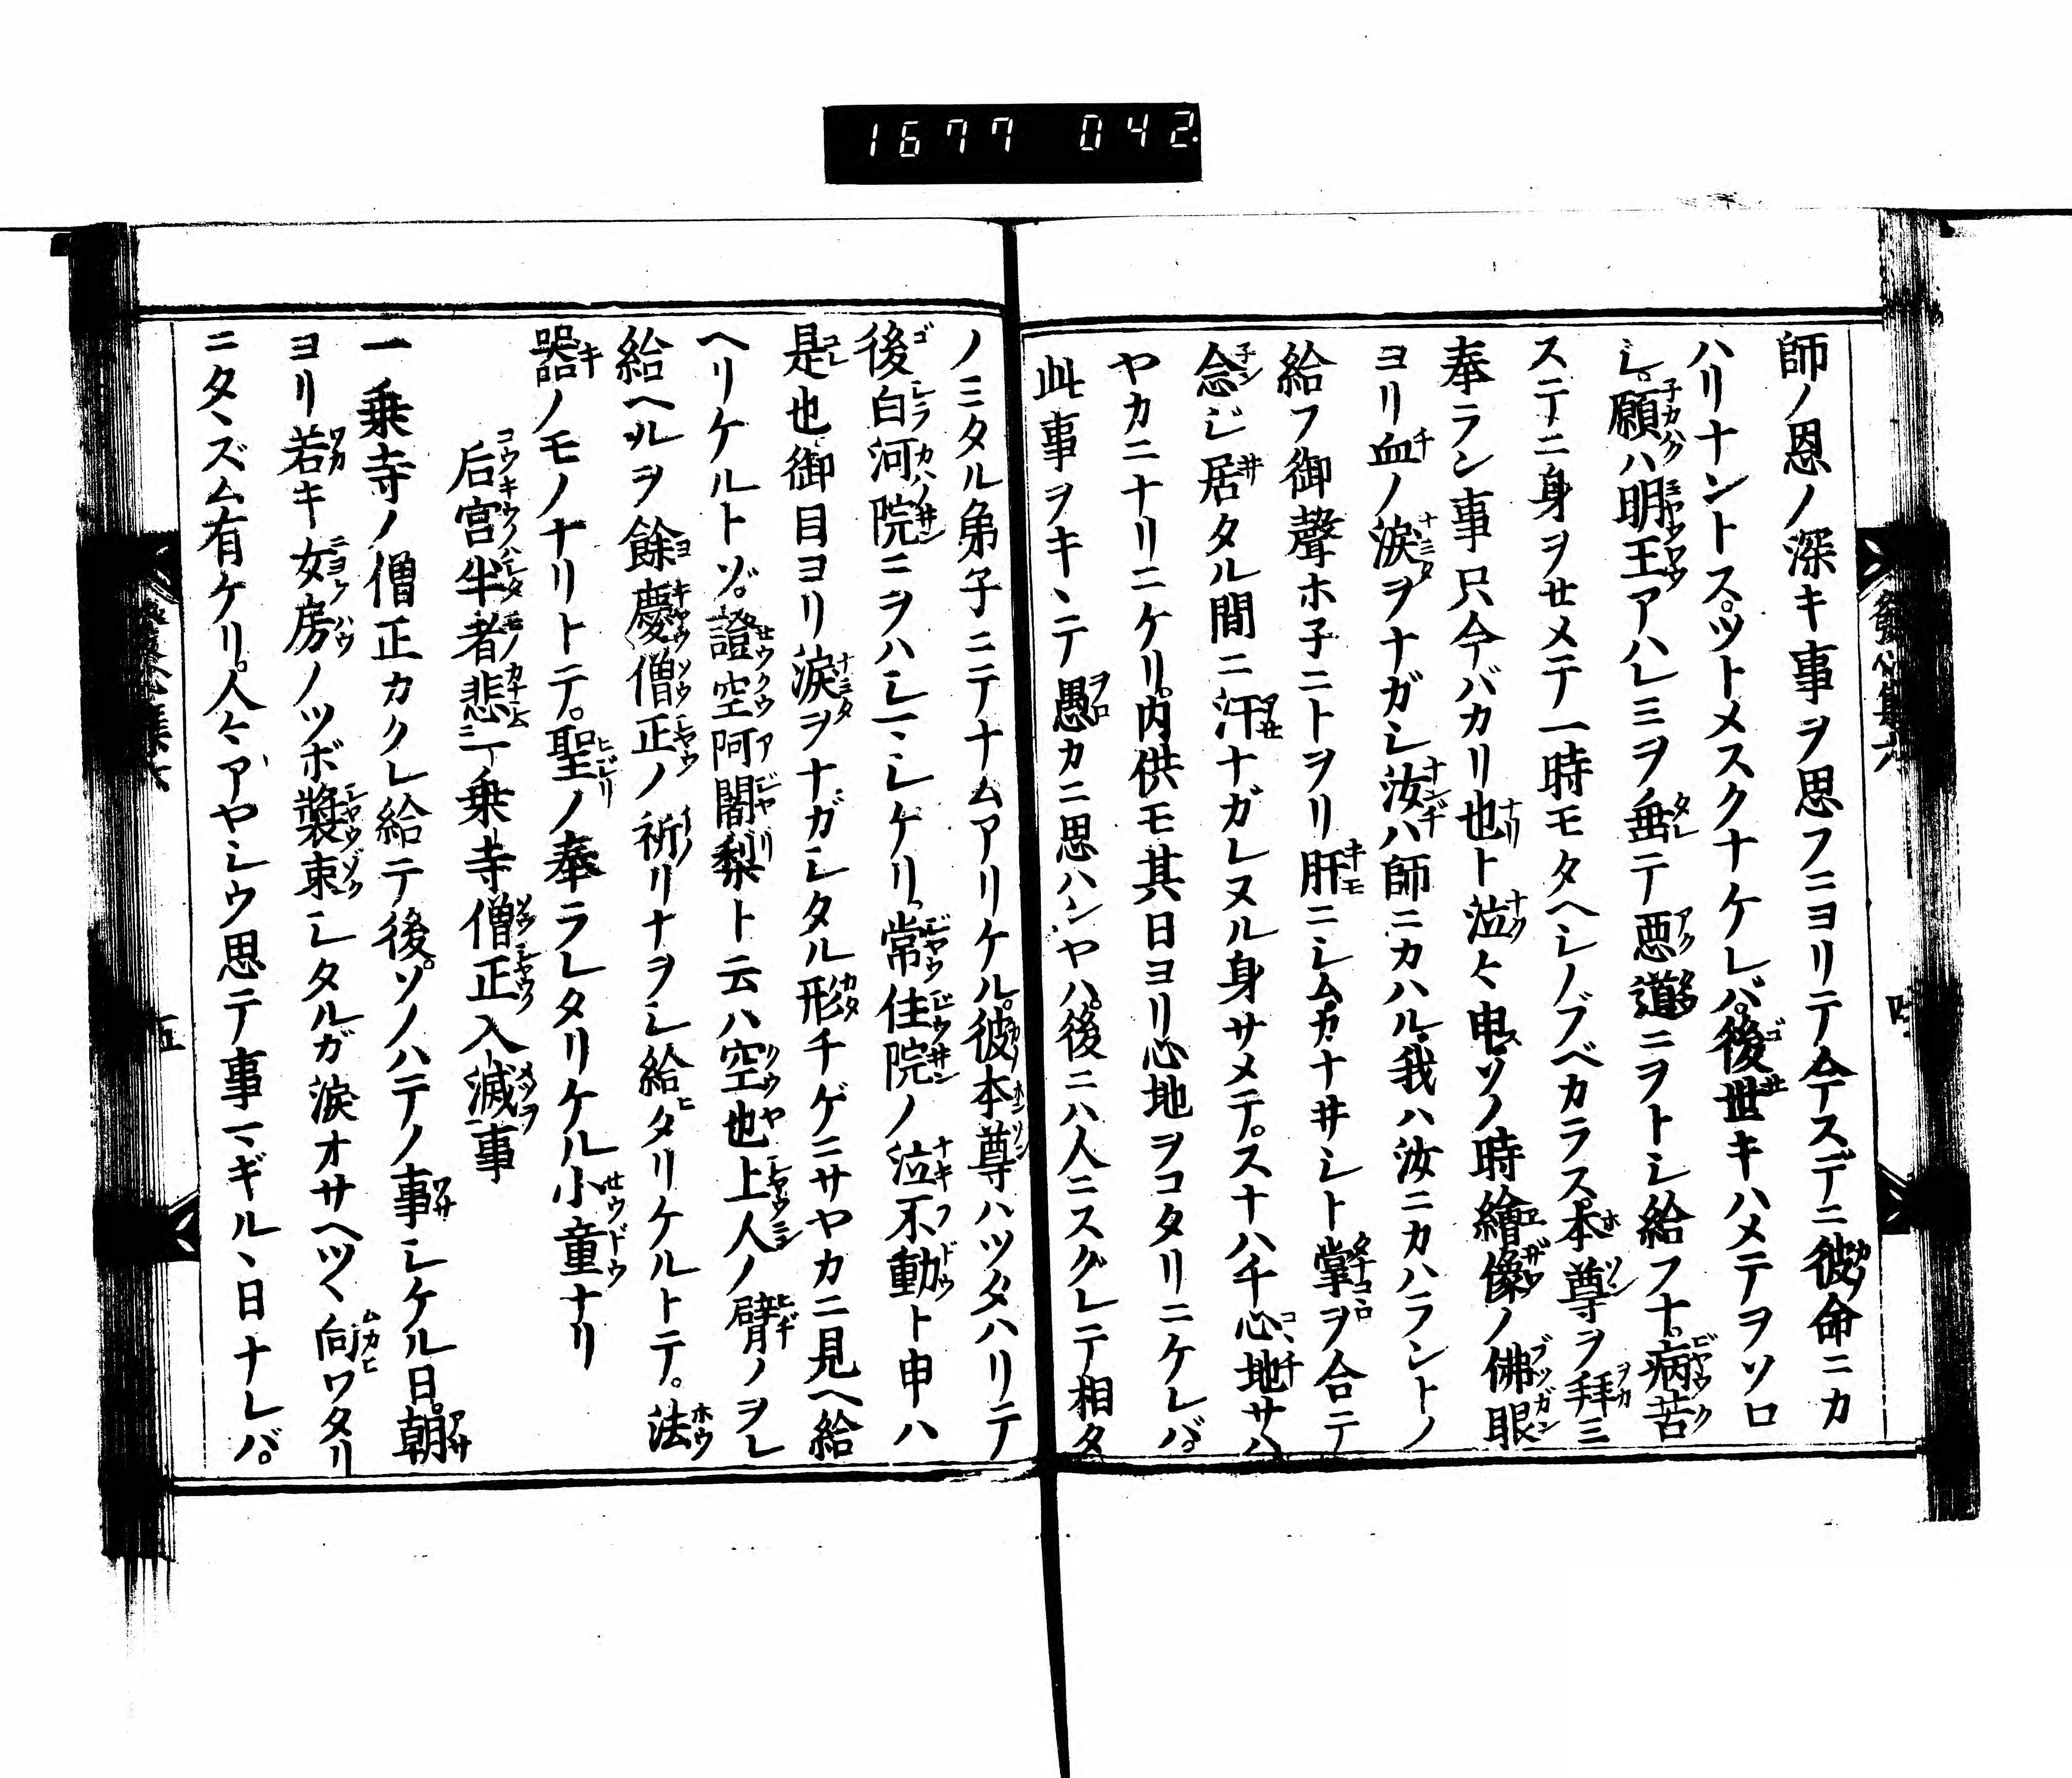 1677 042.
師ノ恩ノ深キ事ヲ思フニヨリテ今スデニ彼命ニカ
ハリナントスツトメスクナケレバ。後世キハメテヲソロ
シ。願ハ明王アハレミヲ垂テ悪道ニヲトシ給フナ。病苦
ステニ身ヲせメテ一時モタヘシノブベカラス。本尊ヲ拜ミ
奉ラン事只今バカリ也ト泣々申ス。ソノ時繪像ノ佛眼
ヨリ血ノ涙ヲナガシ汝ハ師ニカハル。我ハ汝ニカハラントノ
給フ御聲ホ子ニトヲリ肝ニシム。カナサシト掌ヲ合テ
念ジ居タル間ニ汗ナガレヌル身サメテ。スナハチ心地サハ
ヤカニナリニケリ。内供モ其日ヨリ心地ヲコタリニケレバ。
此事ヲキヽテ愚カニ思ハンヤハ。後ニハ人ニスグレテ相タ
ノミタル弟子ニテナムアリケル。彼本尊ハツタハリテ
後白河院ニヲハシマシケリ。常住院ノ泣不動ト申ハ
是也御目ヨリ涙ヲナガシタル形チゲニサヤカニ見ヘ給
ヘリケルトゾ。證空阿闍梨ト云ハ空也上人ノ臂ノヲレ
給ヘルヲ餘慶僧正ノ祈リナヲシ給ヒタリケルトテ。法
器ノモノナリトテ。聖ノ奉ラレタリケル小童ナリ
后宮半者悲一乗寺僧正入滅事
一乗寺ノ僧正カクレ給テ後。ソノハテノ事シケル日。朝
ヨリ若キ女房ノツボ裝束シタルガ涙オサヘツヽ向ワタリ
ニタヽズム有ケリ。人々アヤシウ思テ事マギルヽ日ナレバ。
發心集六
四
五